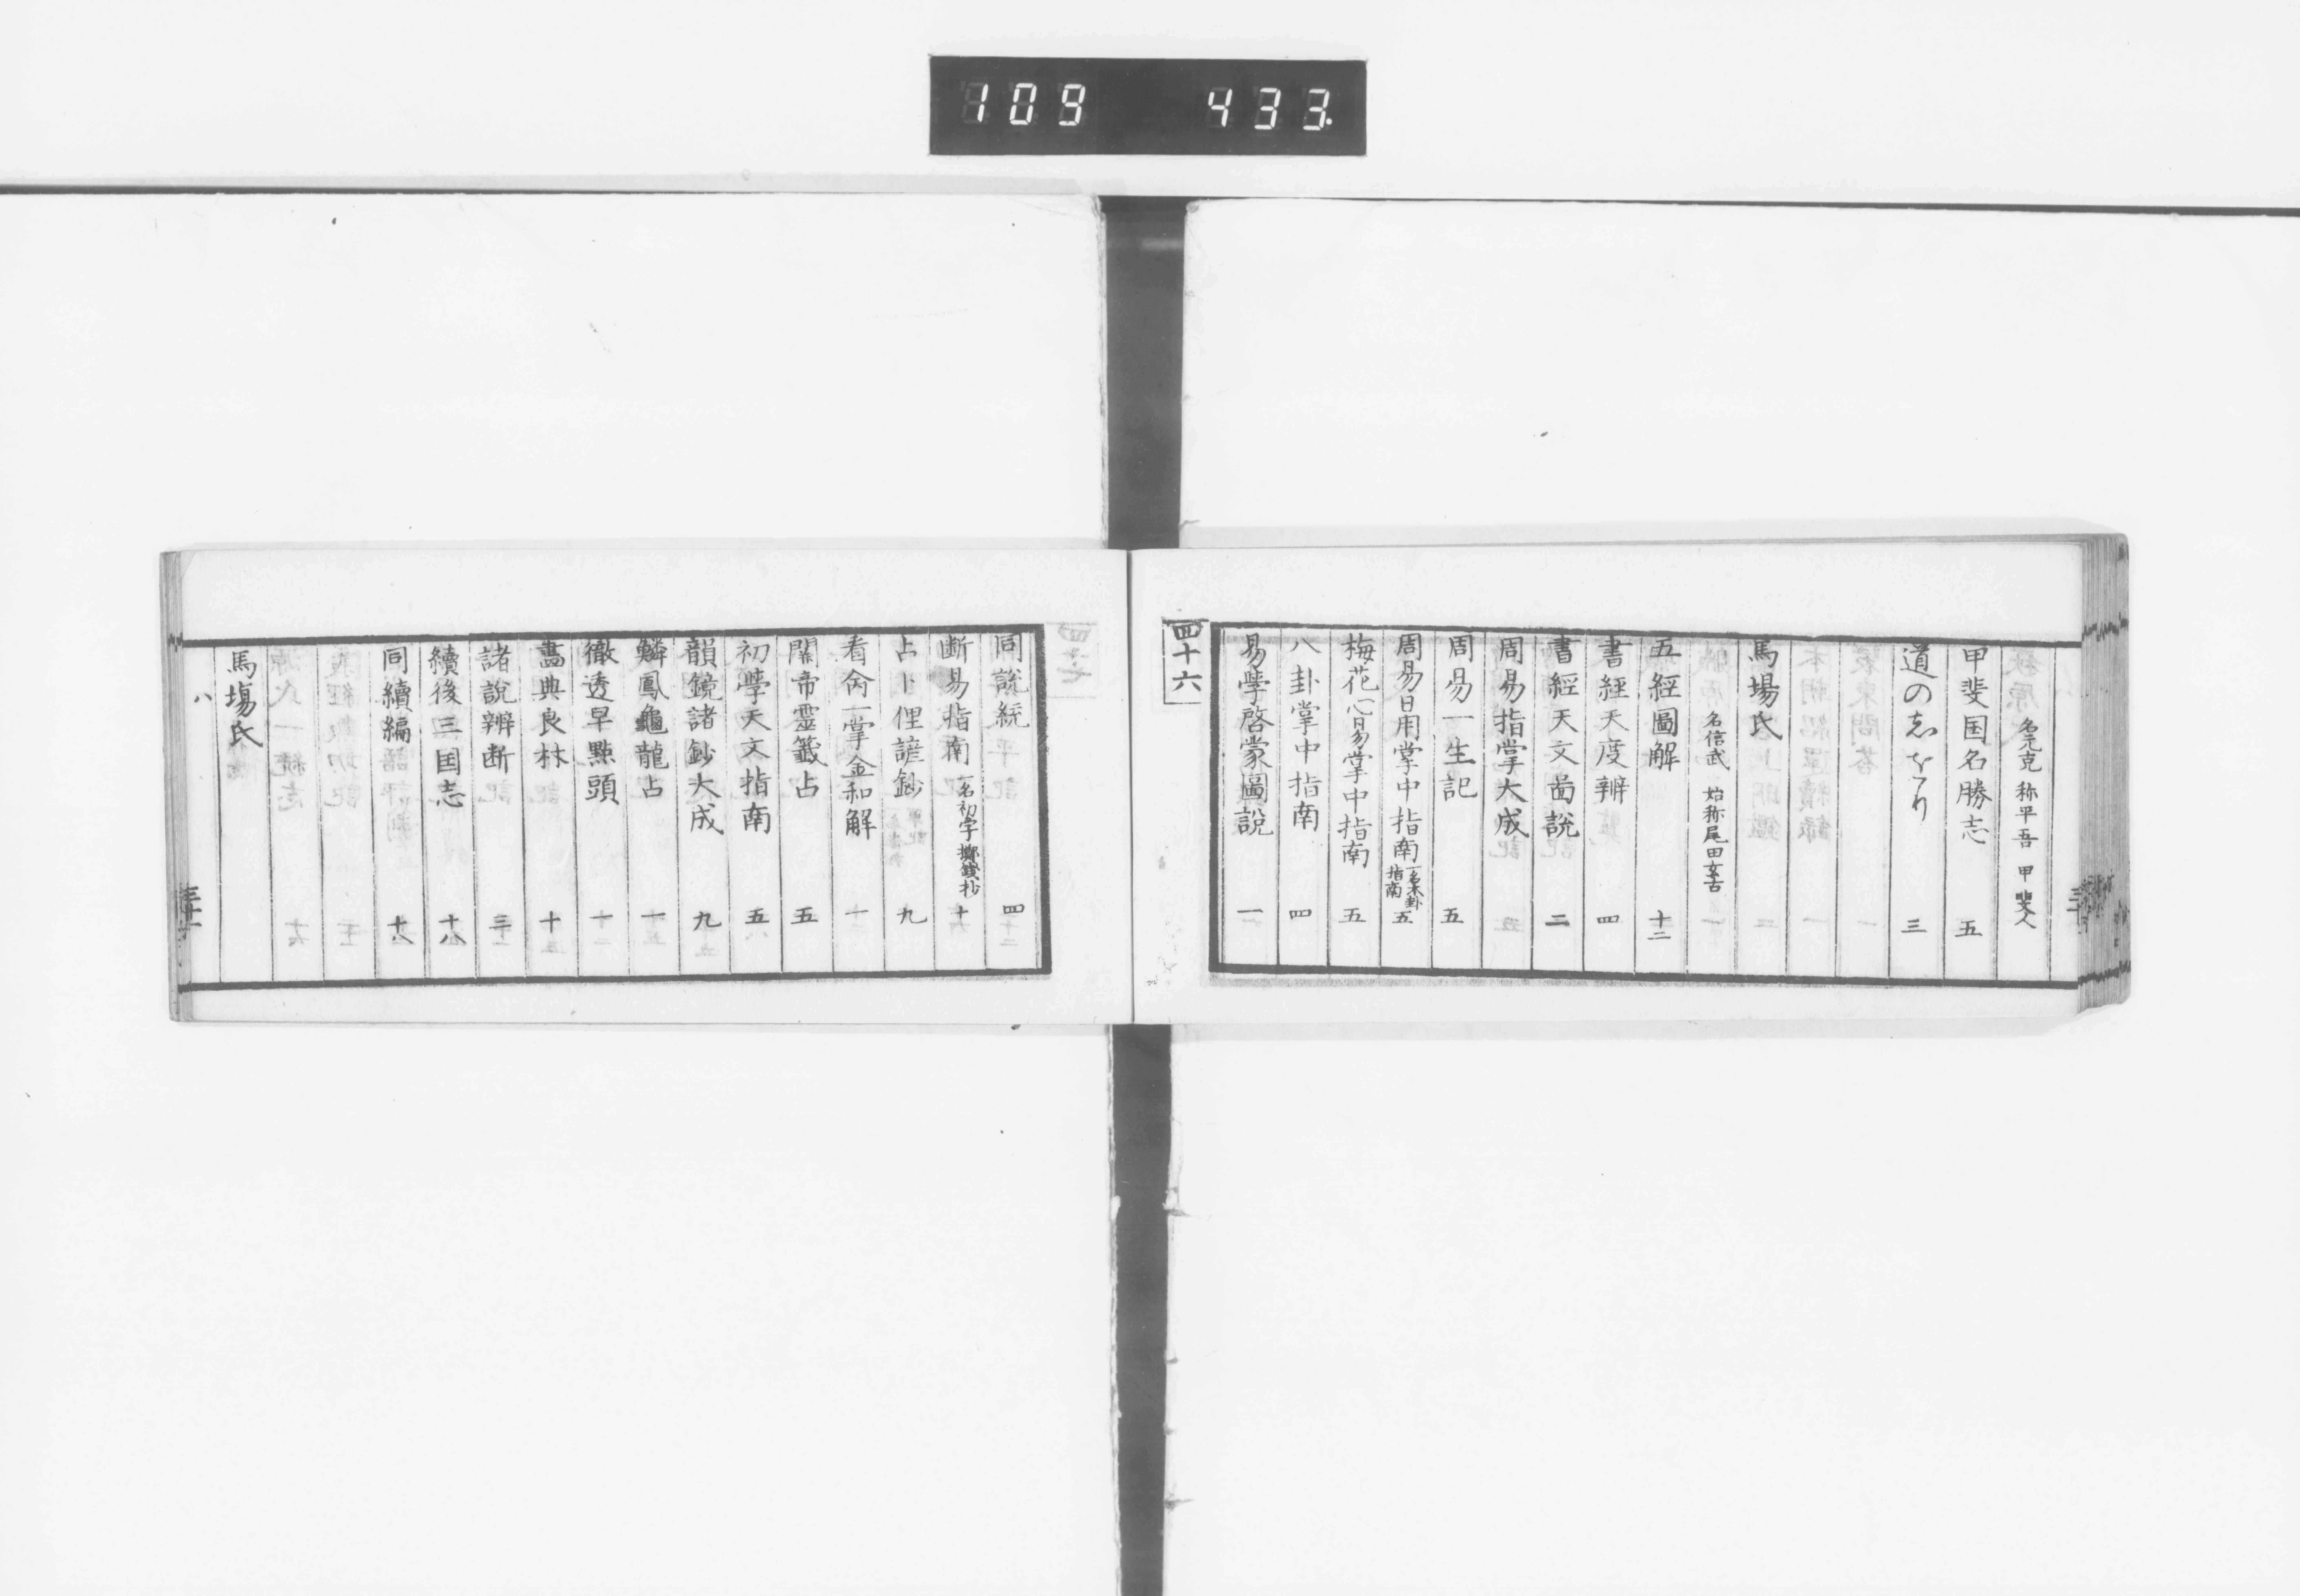 109 433
名元克 称平吾 甲斐人
甲斐国名勝志 五
道の志をり 三
馬場氏
名信武 始称尾田玄古
五經圖解 十二
書經天度辨 四
書經天文啚説 二
周易指掌大成
周易一生記 五
周易日用掌中指南 一名本卦指南 五
梅花心易掌中指南 五
八卦掌中指南 四
易學啓蒙圖說 一
四十六
同說統 四
断易指南 一名初字擲錢抄 十
占卜俚諺鈔 九
看命一掌金和解 一
關帝靈籤占 五
初學天文指南 五
韻鏡諸鈔大成 九
鱗鳳龜龍占 一
徹透早點頭 一
畵典良材 十
諸說辨断 三
續後三国志 十八
同續編 十八
馬場氏
八